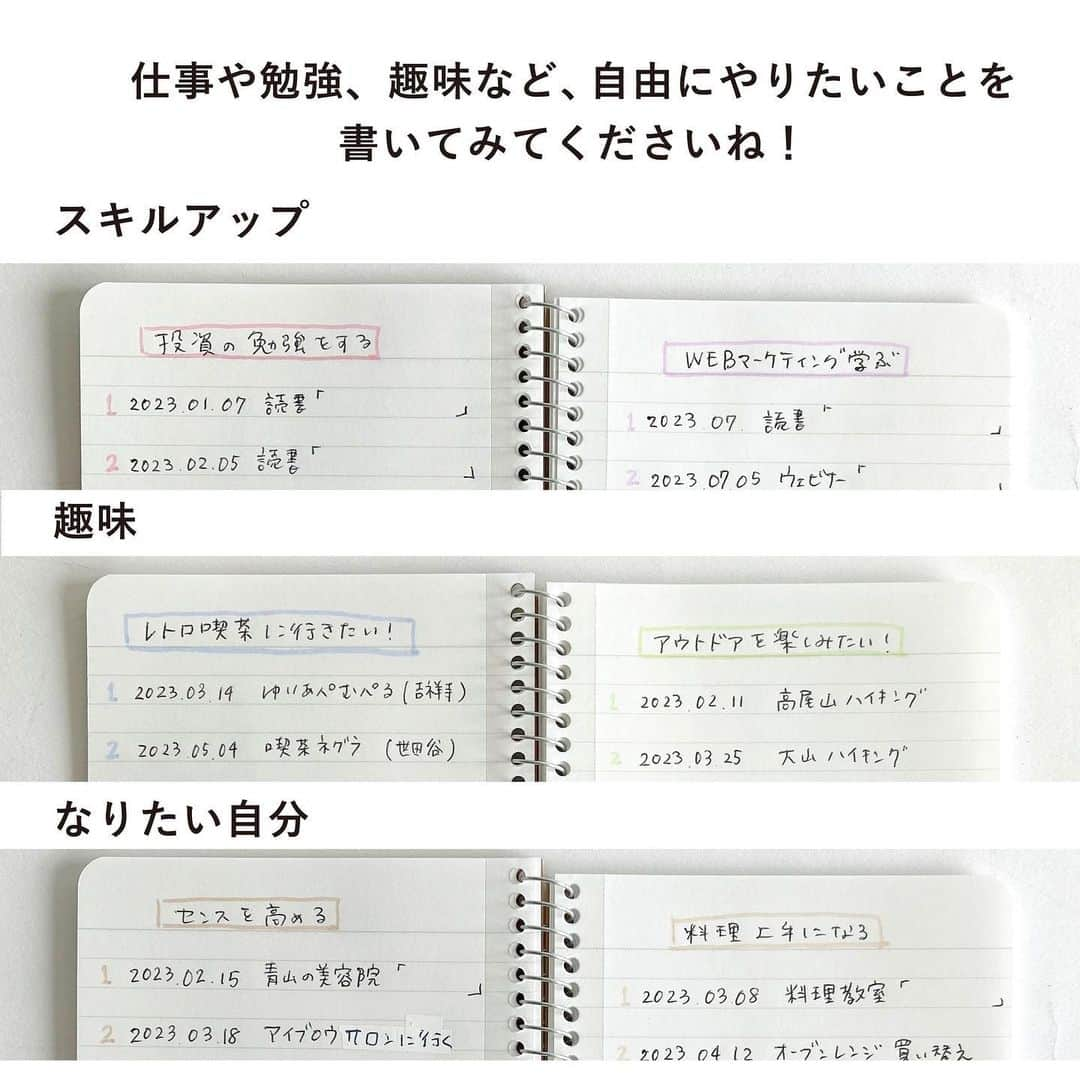 仕事や勉強、趣味など、自由にやりたいことを
書いてみてくださいね！
スキルアップ
投資の勉強をする
1 2023.01.07 読書「 」
2 2023.02.05 読書「 」
WEBマーケティング学ぶ
1 2023.07. 読書「 」
2 2023.07.05 ウェビナー「 」
趣味
レトロ喫茶に行きたい！
1 2023.03.14 ゆりあぺむぺる(吉祥寺)
2 2023.05.04 喫茶ネグラ (世田谷)
アウトドアを楽しみたい！
1 2023.02.11 高尾山ハイキング
2 2023.03.25 大山ハイキング
なりたい自分
センスを高める
1 2023.02.15 青山の美容院「 」
2 2023.03.18 アイブロウサロンに行く
料理上手になる
1 2023.03.08 料理教室「 」
2 2023.04.12 オーブンレンジ買い替え